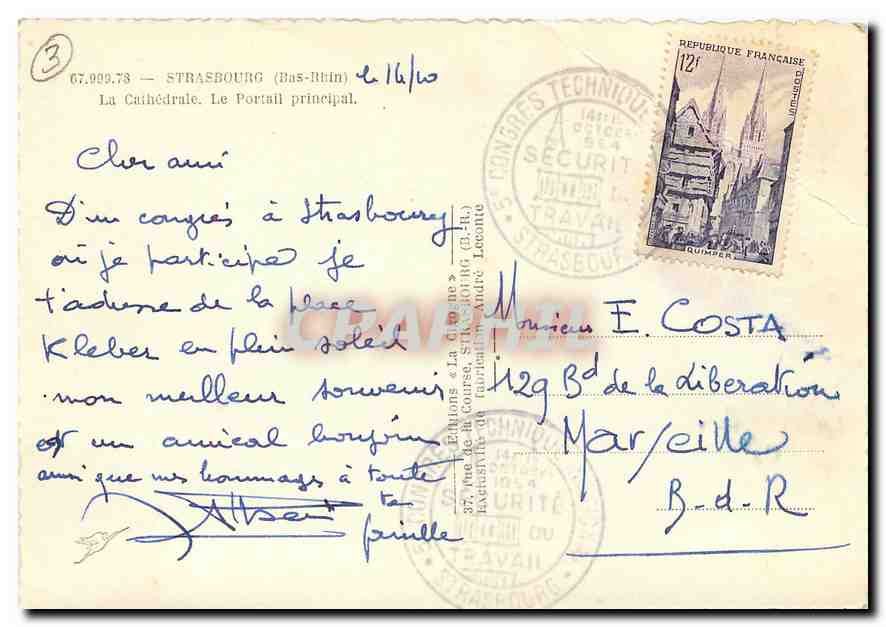 3
67.999.78 — STRASBOURG (Bas-Rhin)
le 14/10
La Cathédrale. Le Portail principal.
Cher ami
D'un congrès à Strasbourg
où je participe je
t'adresse de la place
Kleber en plein soleil
mon meilleur souvenir
et un amical bonjour
ainsi que mes hommages à toute
ta
famille
Editions « La Cigogne »
37, rue de la Course, STRASBOURG (B.-R.)
Exclusivité de fabrication André Leconte
5e CONGRES TECHNIQUE
OCTOBRE
1954
SECURITE
DU
TRAVAIL
STRASBOURG
REPUBLIQUE FRANÇAISE
12f
POSTES
QUIMPER
Monsieur E. COSTA
129 Bd de la Libération
Marseille
B-d-R
5e CONGRES TECHNIQUE
14
OCTOBRE
1954
SECURITE
DU
TRAVAIL
STRASBOURG
CPAPHIL